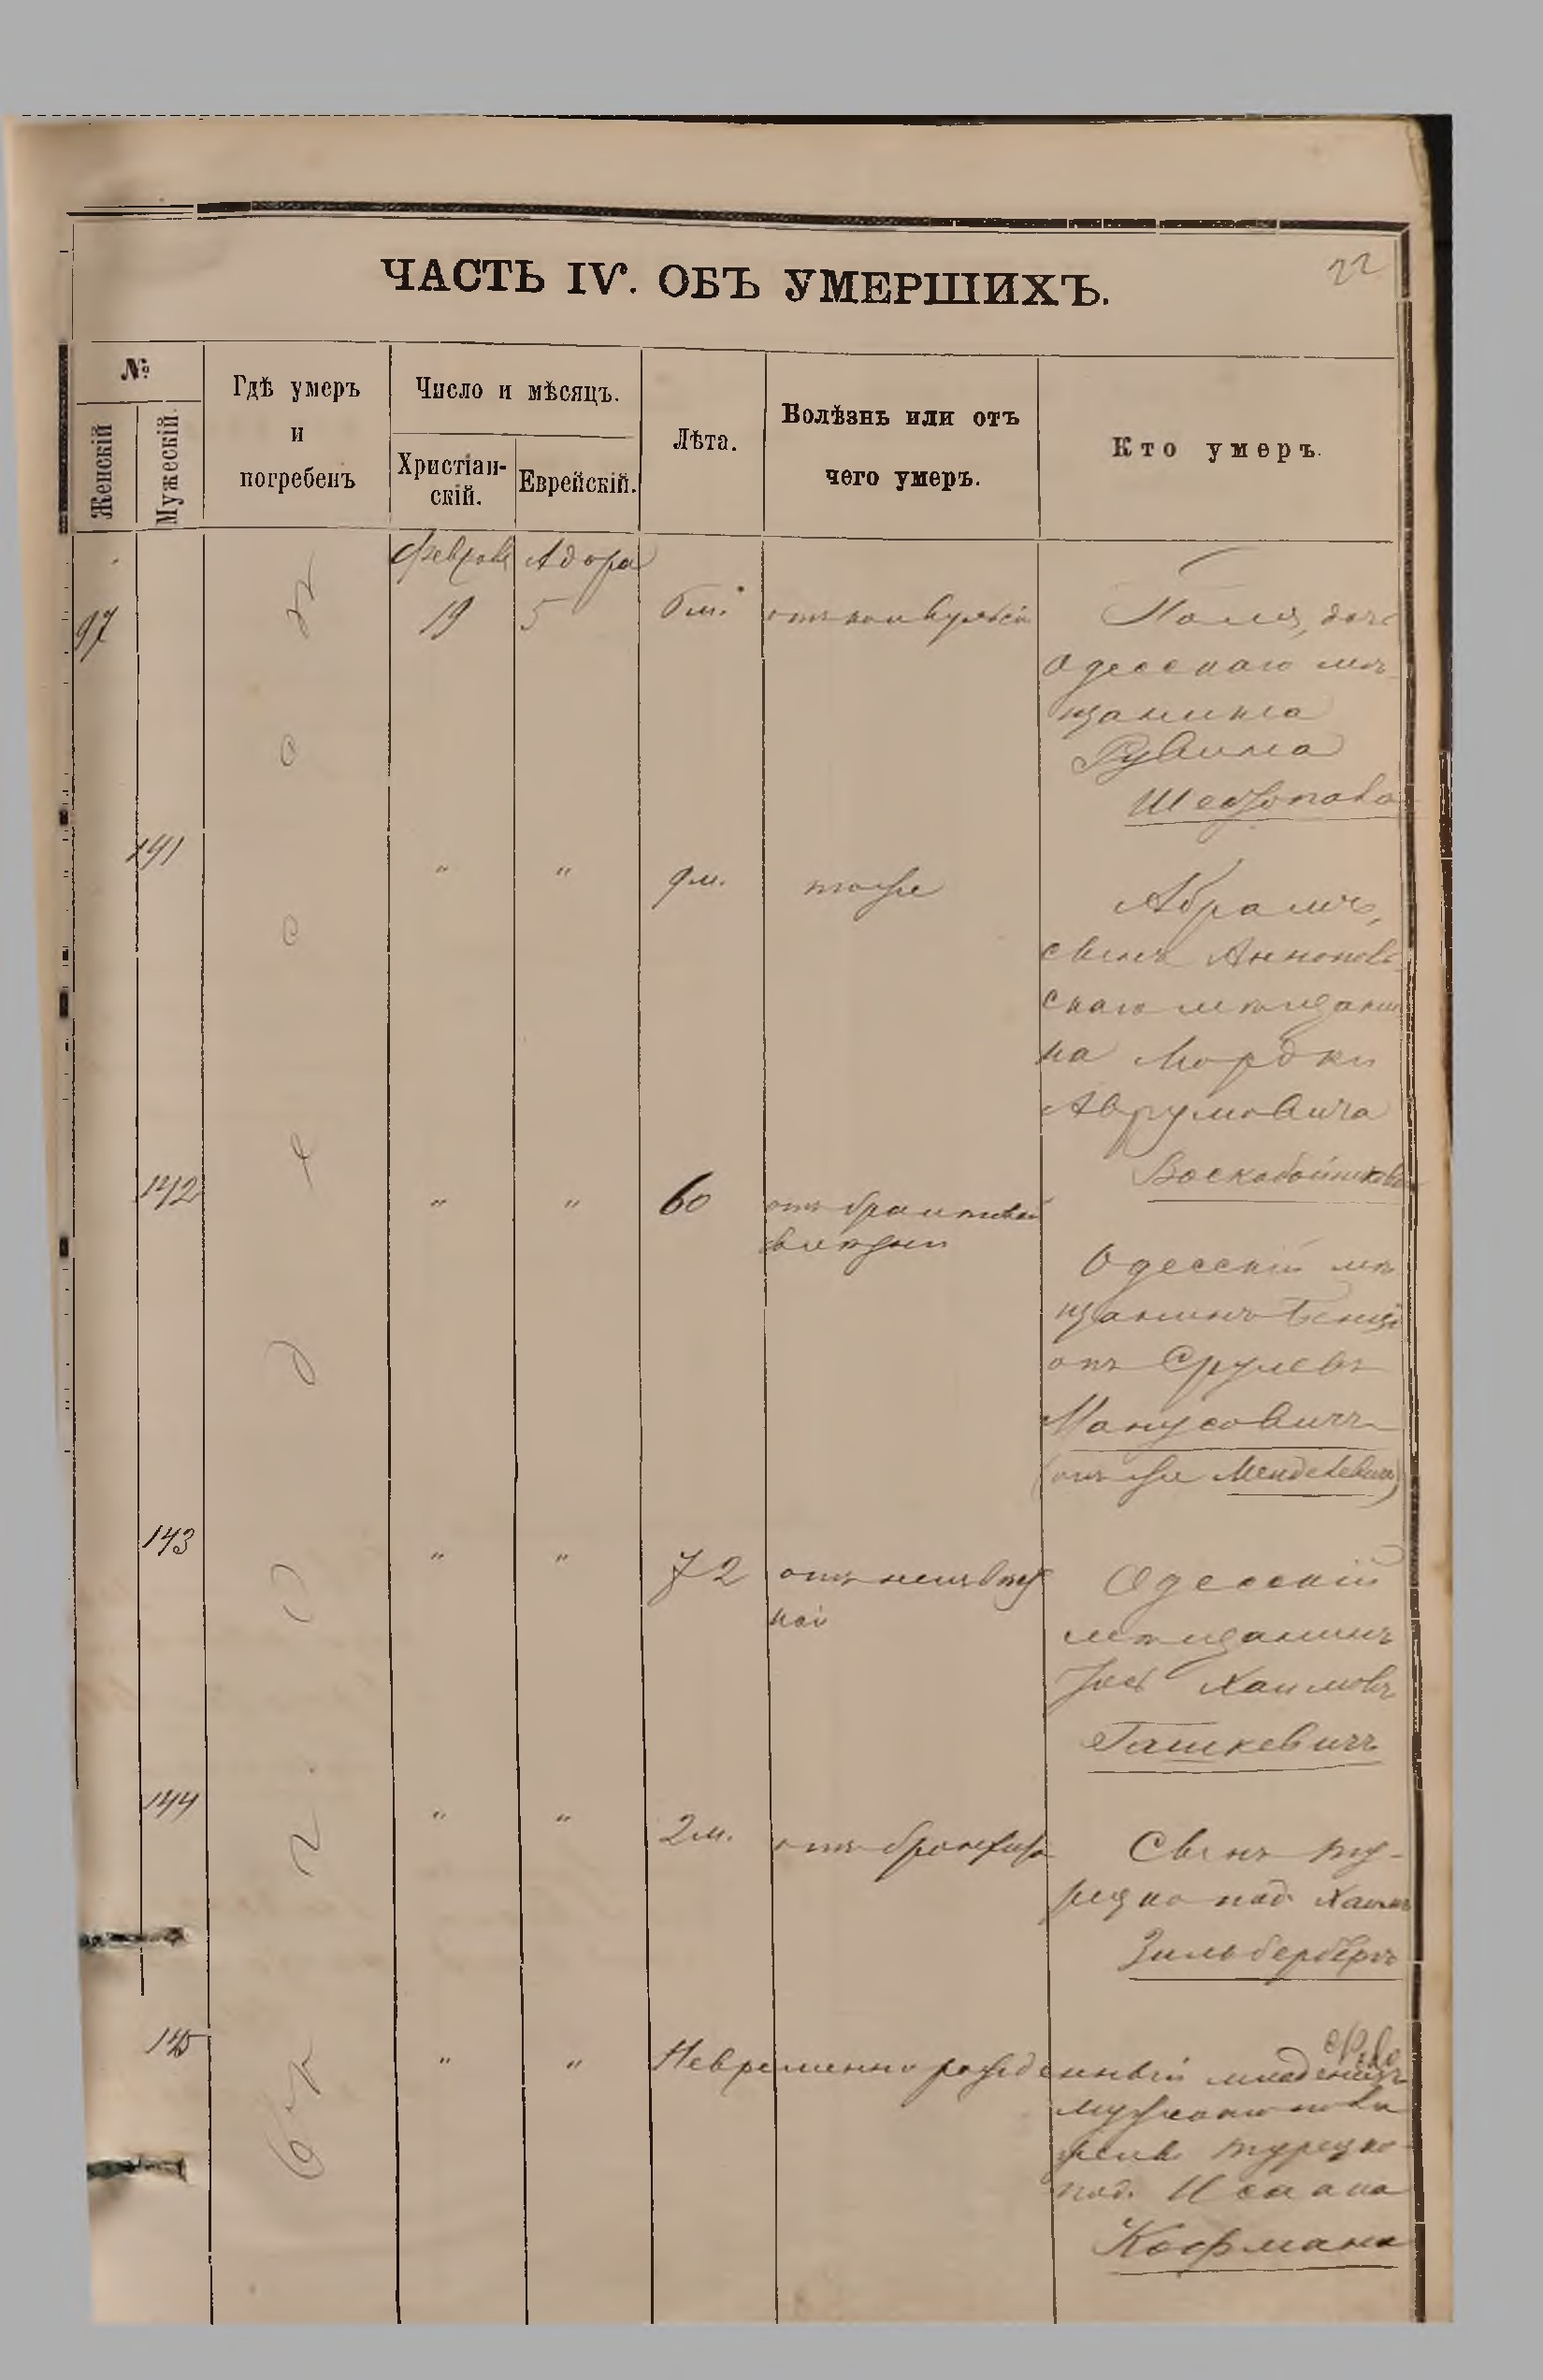 22
ЧАСТЬ IV. ОБЪ УМЕРШИХЪ.
№
Женскій
Мужескій.
Гдѣ умеръ
и
погребенъ
Число и мѣсяцъ.
Христіан-
скій.
Еврейскій.
Лѣта.
Болѣзнь или отъ
чего умеръ.
Кто умеръ.
Февраля Адора
97
19 5 6 м. отъ конвульсій
дочь
Одесскаго мѣ-
щанина
Рувина
141
" " 9 м. тоже
Абрамъ,
сынъ
скаго мѣщани
на Мордки
Аврумовича
Воскобойникова
142
" " 60 отъ
Одесскій мѣ
щанинъ Бенці
онъ Срулевъ
Манусовичъ
(онъ же Менделевичъ)
143
" " 72 отъ
ной
Одесскій
мѣщанинъ
Хаимовъ
Ташкевичъ
144
" " 2 м. отъ бронхита
Сынъ ту-
рецко под. Хаима
Зильберберъ
145
" " Невременно рожденный младенецъ
мужскаго пола
турецко-
под.
Кофмана
въ Одессѣ